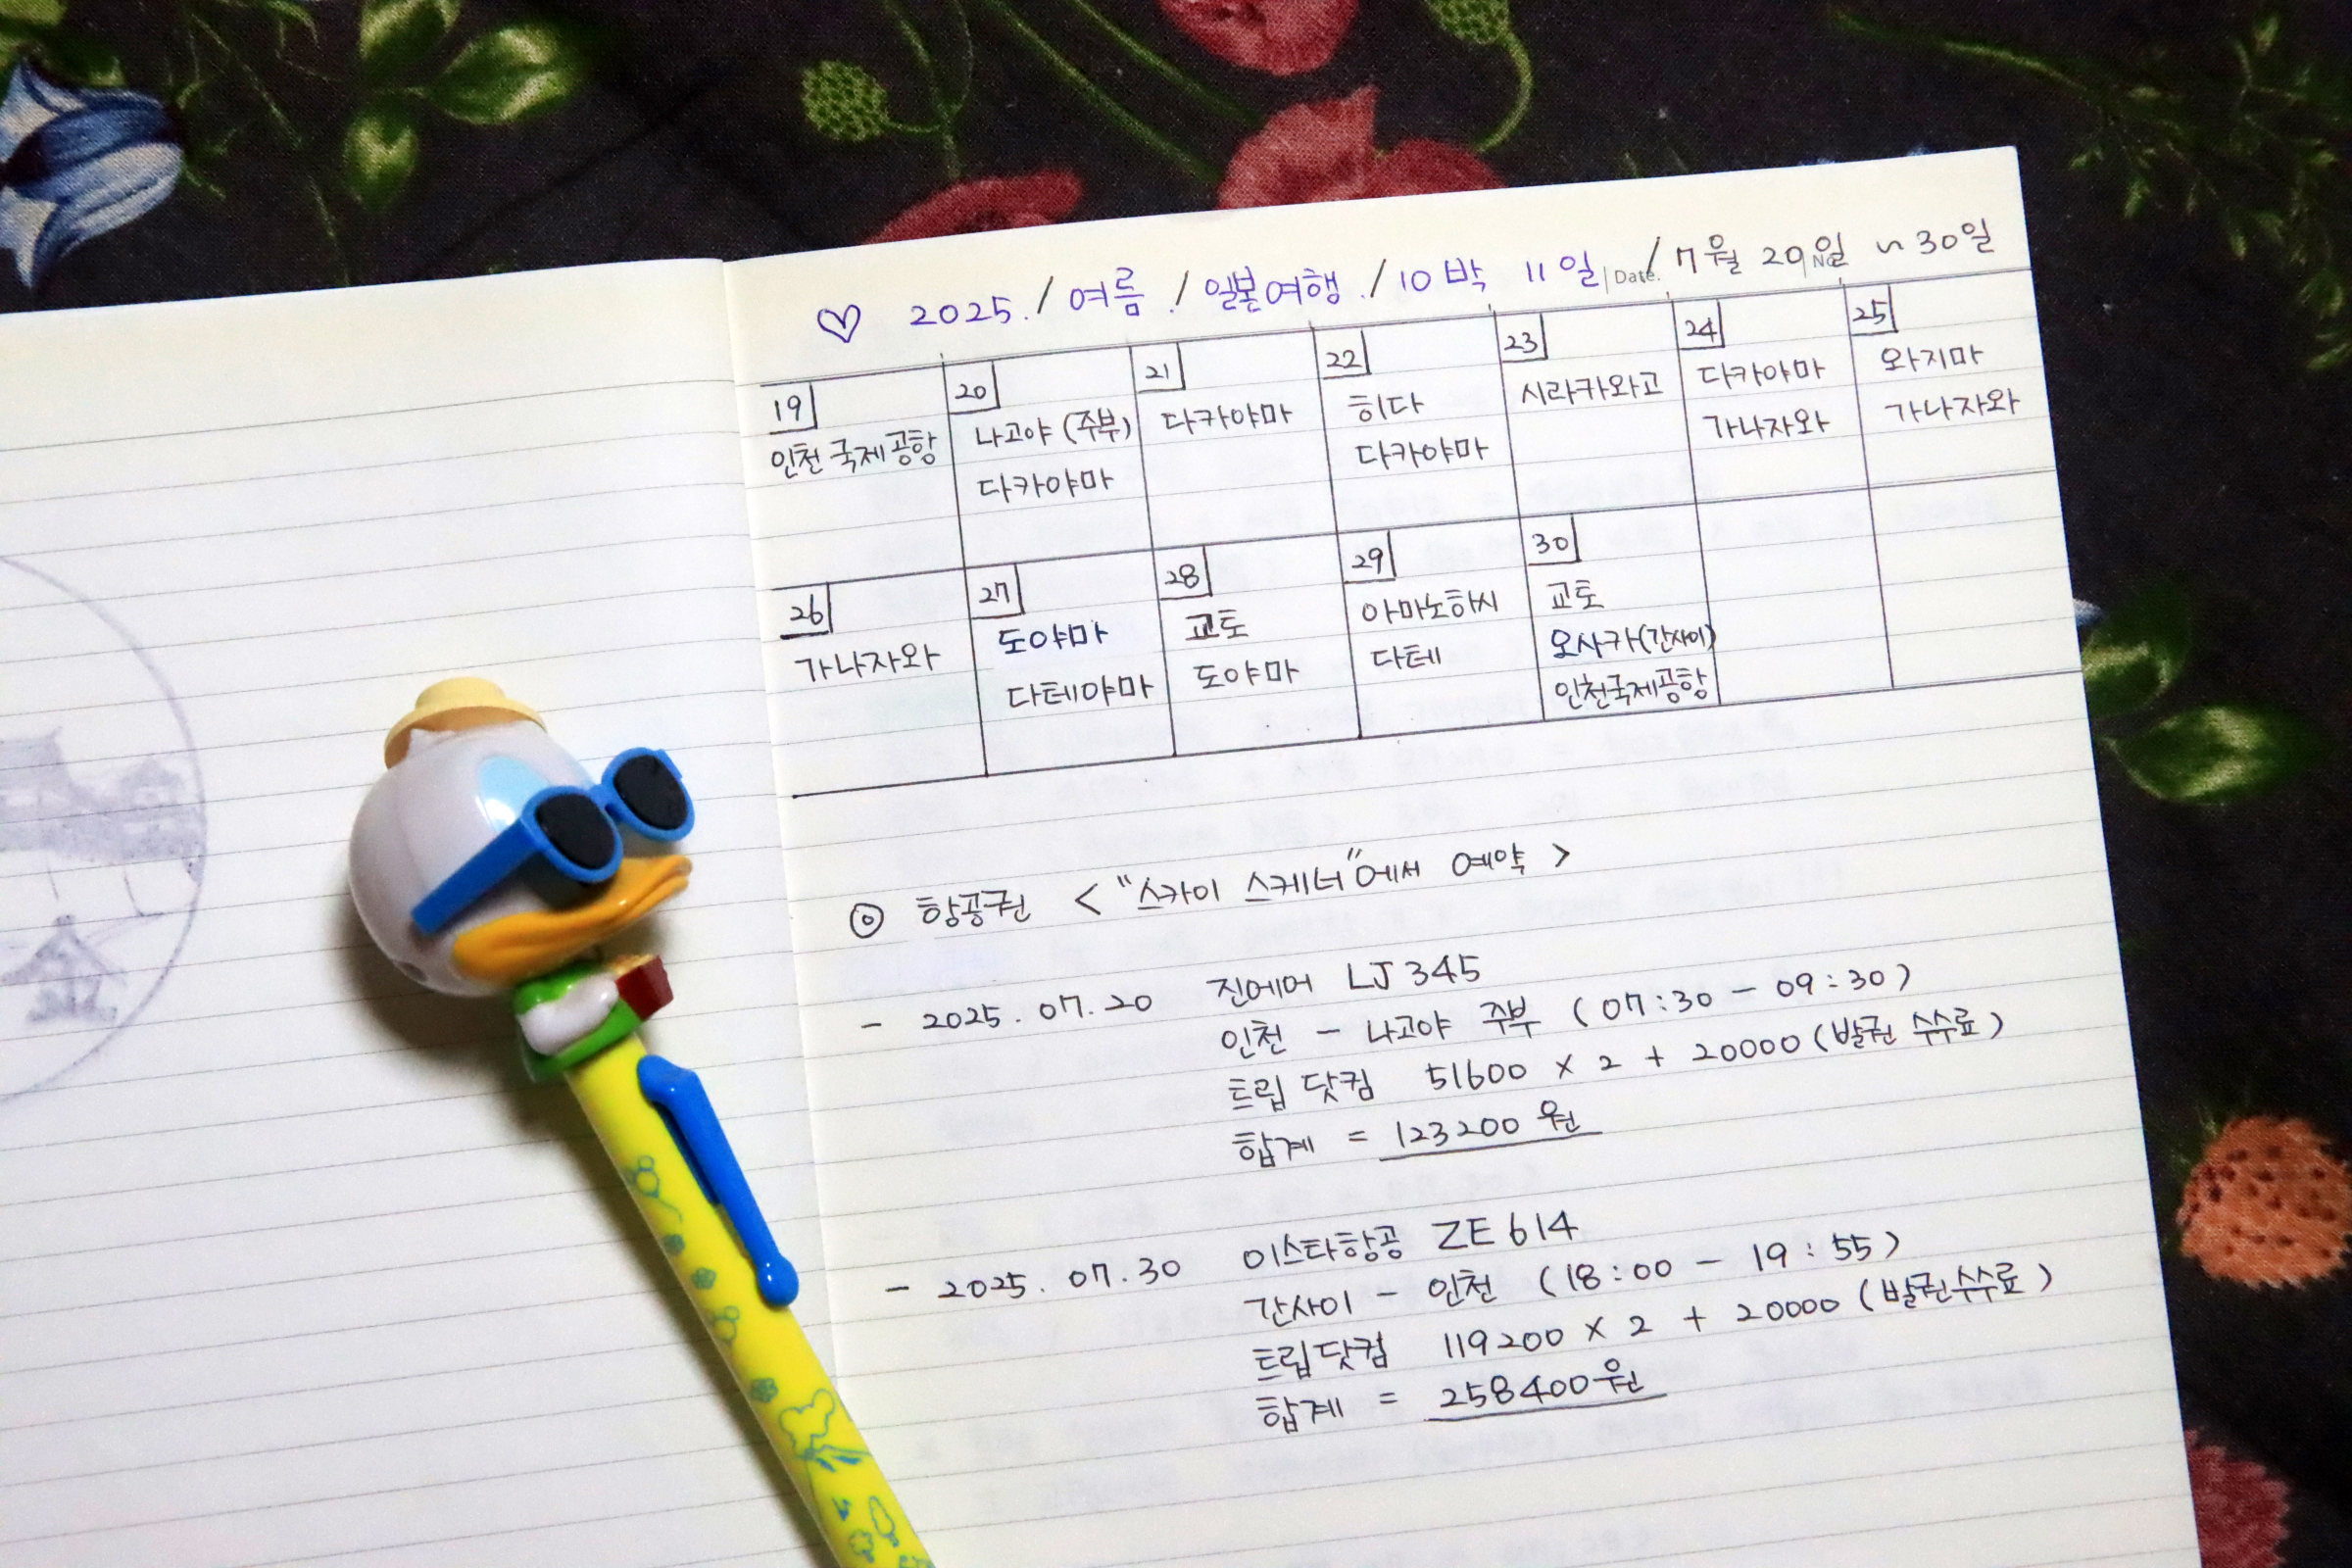 ♡ 2025. / 여름 / 일본여행 / 10박 11일 / 7월 20일 ~ 30일
Date. No.
19 20 21 22 23 24 25
인천국제공항 나고야(주부) 다카야마 히다 시라카와고 다카야마 와지마
다카야마 다카야마 가나자와 가나자와
26 27 28 29 30
가나자와 도야마 교토 아마노하시 교토
다테야마 도야마 다테 오사카(간사이)
인천국제공항
◎ 항공권 < "스카이 스케너"에서 예약 >
- 2025. 07. 20 진에어 LJ 345
인천 - 나고야 주부 (07:30 - 09:30)
트립닷컴 51600 x 2 + 20000 (발권 수수료)
합계 = 123200 원
- 2025. 07. 30 이스타항공 ZE 614
간사이 - 인천 (18:00 - 19:55)
트립닷컴 119200 x 2 + 20000 (발권수수료)
합계 = 258400원